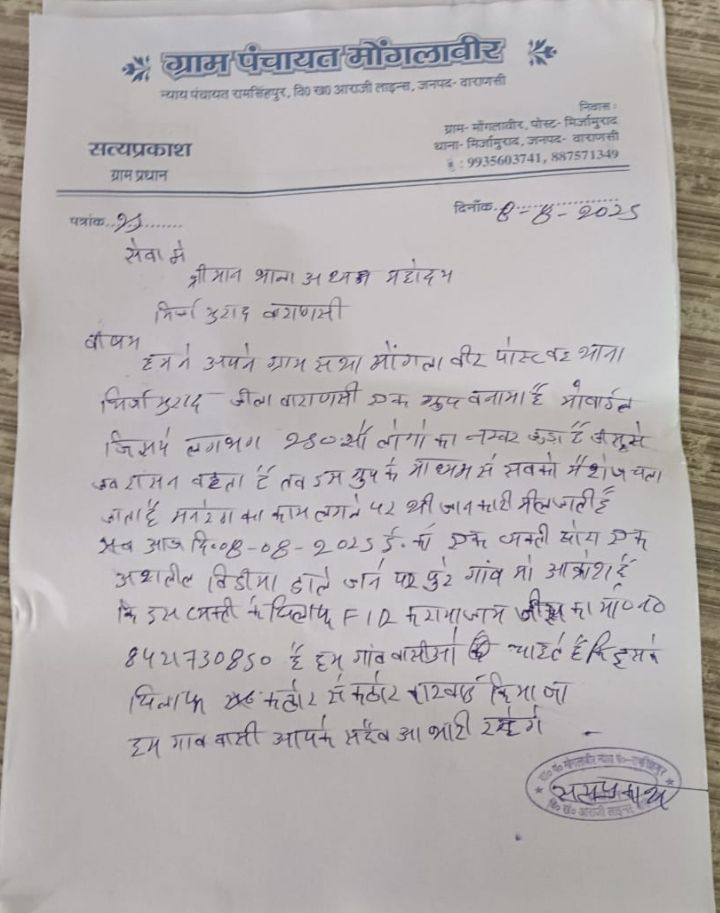 ग्राम पंचायत मोंगलावीर
न्याय पंचायत रामसिंहपुर, वि० ख० आराजी लाइन्स, जनपद- वाराणसी
निवास :
ग्राम- मोंगलावीर, पोस्ट- मिर्जामुराद
थाना- मिर्जामुराद, जनपद- वाराणसी
: 9935603741, 887571349
सत्यप्रकाश
ग्राम प्रधान
पत्रांक..
दिनाँक. 8-8-2025
सेवा मे
श्रीमान थाना अध्यक्ष महोदय
मिर्जा मुराद वाराणसी
बीषय
हमने अपने ग्राम सभा मोंगला वीर पोस्ट वह थाना
मिर्जा मुराद जीला वाराणसी एक ग्रुप बनाया है मोबाईल
जिसमे लगभग 280 सौ लोगो का नम्बर जुडा है
जब रासन बटता है तब इस ग्रुप के माध्यम से सबको मैशेज चला
जाता है मनरेगा का काम लगने पर भी जानकारी मील जाती है
आज दि.08-08-2025 ई. को एक व्यक्ती एक
अशलील विडीया डाले जाने पर पुरे गांव मो आक्रोश है
कि इस व्यक्ती के खिलाफ FIR कराया जाय का मो० न०
8421730850 है हम गांव वासीओ चाहते है कि इसके
खिलाफ कठोर से कठोर कारवाई किया जा
हम गाव वासी आपके सदैव आभारी रहेगे
ग्रा० पं० मोंगलावीर न्याय पं०-रामसिंहपुर
सत्यप्रकाश
वि० खं० आराजी लाइन्स